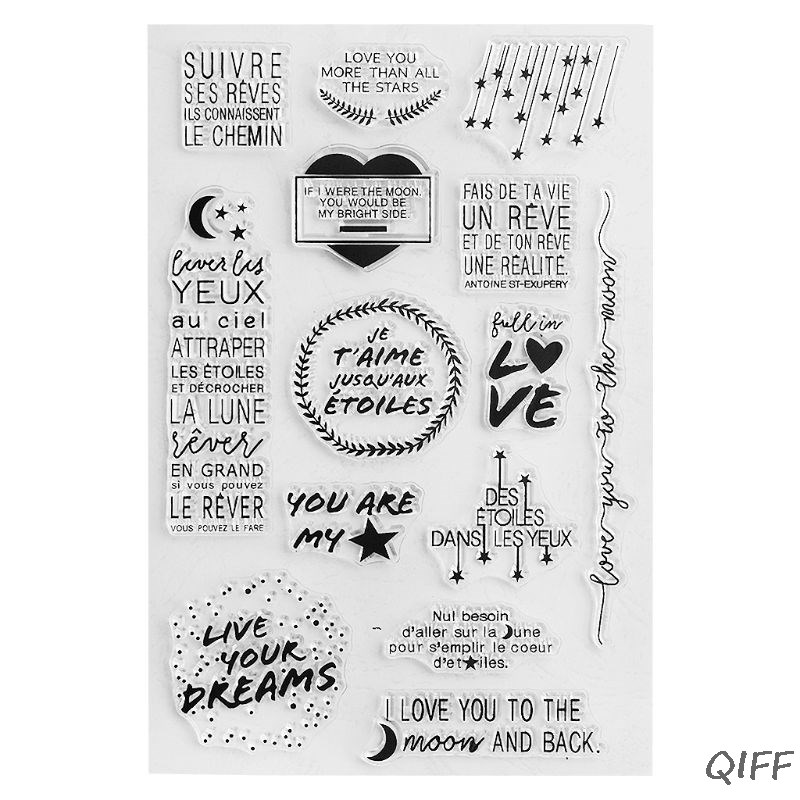 SUIVRE
SES RÊVES
ILS CONNAISSENT
LE CHEMIN
LOVE YOU
MORE THAN ALL
THE STARS
IF I WERE THE MOON,
YOU WOULD BE
MY BRIGHT SIDE.
FAIS DE TA VIE
UN RÊVE
ET DE TON RÊVE
UNE RÉALITÉ.
ANTOINE ST-EXUPÉRY
lever les
YEUX
au ciel
ATTRAPER
LES ÉTOILES
ET DÉCROCHER
LA LUNE
rêver
EN GRAND
si vous pouvez
LE RÊVER
VOUS POUVEZ LE FAIRE
JE
T'AIME
JUSQU'AUX
ÉTOILES
full in
LOVE
love you to the moon
YOU ARE
MY
DES
ÉTOILES
DANS LES YEUX
LIVE
YOUR
DREAMS
Nul besoin
d'aller sur la lune
pour s'emplir le coeur
d'etoiles.
I LOVE YOU TO THE
moon AND BACK.
QIFF